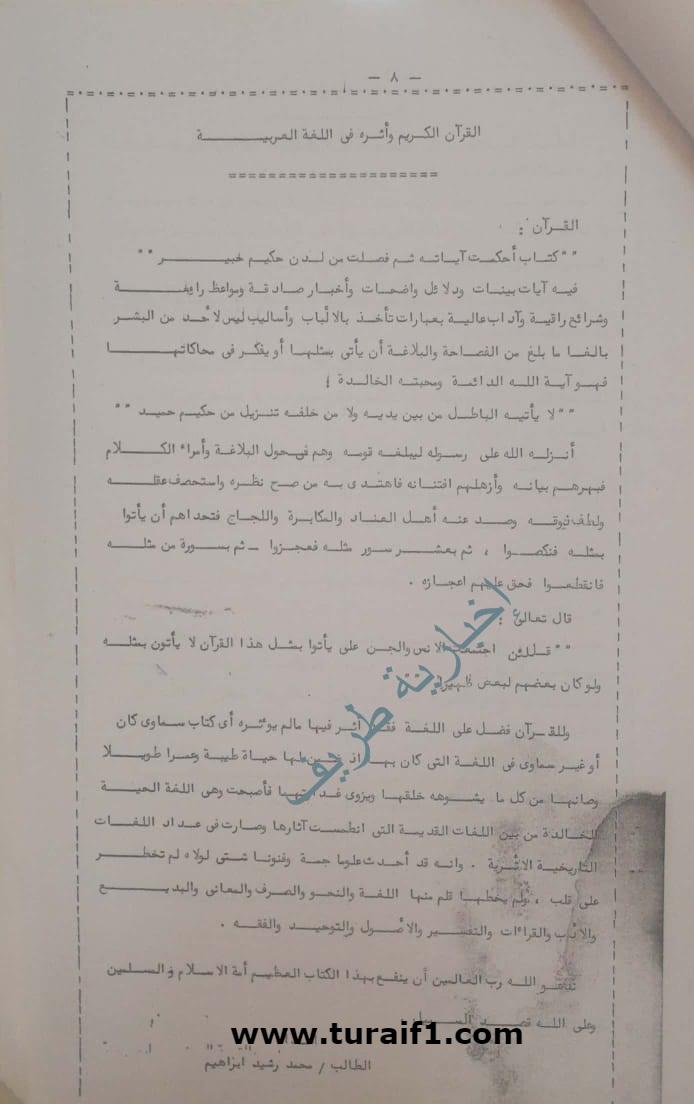 — ٨ —
القرآن الكريم وأثره فى اللغة العربيـــــــة
القـرآن :
" " كتـاب أحكمـت آياتـه ثـم فصلـت من لـدن حكيـم خبيـــــر " "
فيـه آيات بينـات ودلائل واضحـات وأخبـار صادقـة ومواعظ رايعـــة
وشرائع راقيـة وآداب عاليـة بعبارات تأخـذ بالألباب وأساليب ليس لأحـد من البشر
بالغـا ما بلـغ من الفصاحـة والبلاغـة أن يأتى بمثلهـا أو يفكـر فى محاكاتهـــــا
فهـو آيـة اللـه الدائمـة ومحبته الخالـدة !
" " لا يأتيـه الباطـل من بين يديـه ولا من خلفـه تنـزيل من حكيـم حميـد " "
أنـزلـه الله على رسولـه ليبلغـه قومـه وهم فحول البلاغـة وأمراء الكـــلام
فبهرهـم بيانـه وأزهلهـم افتنانـه فاهتـدى به من صـح نظـره واستحصف عقلـــه
ولطف ذوقـه وصـد عنـه أهـل العنـاد والمكابرة واللجاج فتحداهـم أن يأتوا
بمثلـه فنكصـوا ، ثم بعشـــر سـور مثلـه فعجـزوا ــ ثم بسـورة من مثلـــه
فانقطعـوا فحق عليهم اعجازه .
قال تعالى :
" " قـل لئن اجتمعت الانس والجـن على يأتوا بمثـل هـذا القرآن لا يأتون بمثلـــه
ولو كان بعضهـم لبعض ظهيرا
وللقـرآن فضـل على اللغـة فقد أثـر فيهـا مالم يوئثره أى كتاب سماوى كان
أو غير سماوى فى اللغـة التى كان بهـا اذ ضمن لها حيـاة طيبـة وعمـرا طويـــلا
وصانهـا من كـل ما يشـوه خلقهـا ويزوى فأصبحت وهى اللغـة الحيـة
الخالـدة من بين اللغـات القديمـة التى انطمسـت آثارهـا وصارت فى عـداد اللغـات
التاريخيـة الأثريـة . وانـه قد أحـدث علومـا جمـة وفنونـا شـتى لولاه لم تخطـــر
على قلب ، ولم يخطهـا قلم منهـا اللغـة والنحـو والصرف والمعانى والبديـــع
والأدب والقراءات والتفسير والأصـول والتوحيـد والفقـه .
اللـه رب العالمين أن ينفـع بهـذا الكتاب العظيـم أمة الاسـلام والمسلمين
وعلى اللـه قصـد السبيل
الطالب / محمد رشيد ابراهيم
اخبارية طريف
www.turaif1.com